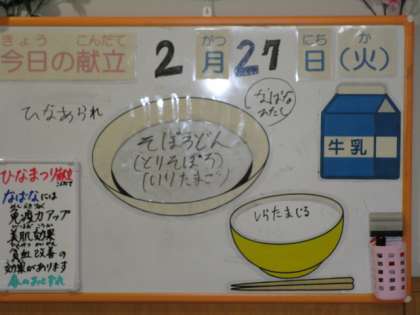 きょう こんだて
今日の献立 2月27日(火)
がつ にち か
ひなあられ
なばな
そぼろどん
(とりそぼろ)
(いりたまご)
牛乳
しらたまじる
ひなまつり献立
なばなには
免疫力アップ
美肌効果
貧血改善の
効果があります